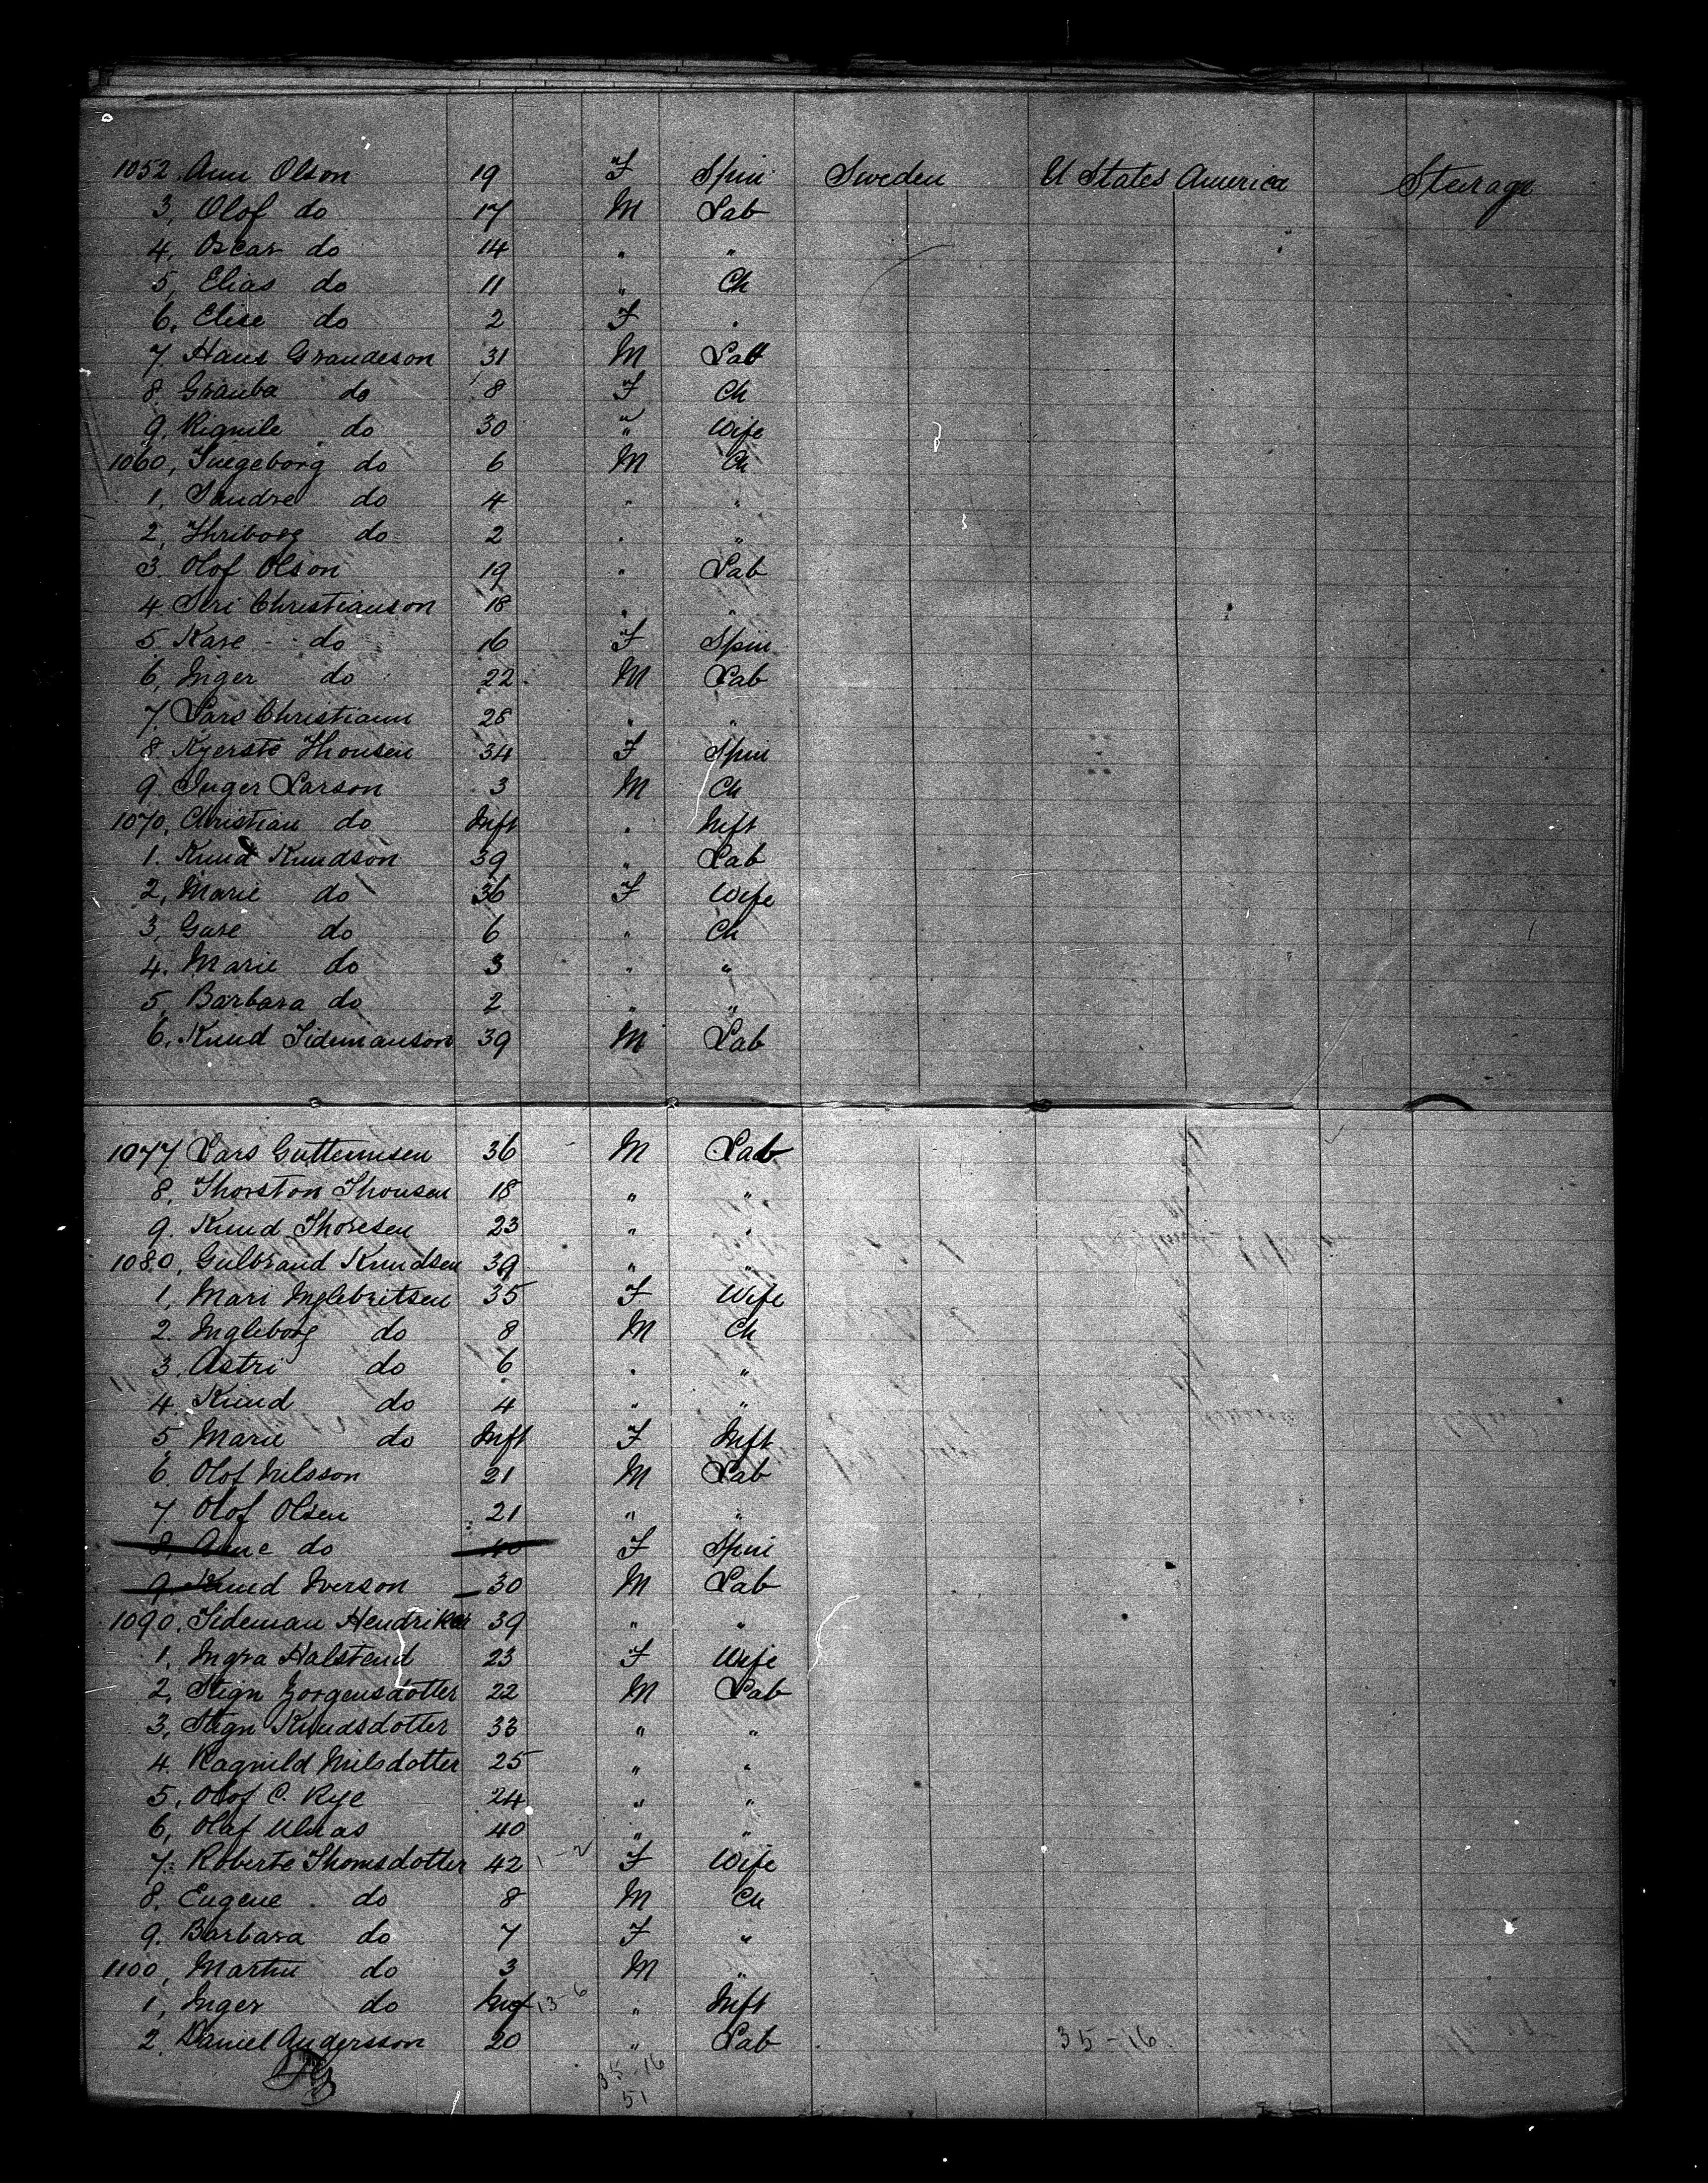 1052. Ann Olson 19 F Spin Sweden U States America Stearage
3, Olof do 17 M Lab
4, Oscar do 14 " "
5, Elias do 11 " Ch
6, Elise do 2 F "
7. Hans Grandeson 31 M Lab
8. Grauba do 8 F Ch
9. Rignile do 30 " Wife
1060, Ingeborg do 6 M Ch
1, Sandre do 4 " "
2, Thriborg do 2 " "
3. Olof Olson 19 " Lab
4 Siri Christianson 18 " "
5. Kare do 16 F Spin
6, Inger do 22 M Lab
7 Lars Christiann 28 " "
8. Kjerste Thonsen 34 F Spin
9. Inger Larson 3 M Ch
1070, Christian do Inft " Inft
1. Knud Knudson 39 " Lab
2, Marie do 36 F Wife
3, Gure do 6 " Ch
4. Marie do 3 " "
5, Barbara do 2 " "
6, Knud Tidemanson 39 M Lab
1077 Lars Guttermsen 36 M Lab
8, Thorston Thonsen 18 " "
9. Knud Thoresen 23 " "
1080, Gulbrand Knudsen 39 " "
1, Mari Inglebritsen 35 F Wife
2. Ingleborg do 8 M Ch
3, Astri do 6 " "
4 Knud do 4 " "
5, Marie do Inft F Inft
6. Olof Nilsson 21 M Lab
7. Olof Olsen 21 " "
8, Anne do 40 F Spin
9 Knud Iverson 30 M Lab
1090, Tideman Hendriker 39 " "
1, Ingra Halstend 23 F Wife
2, Stign Jorgensdotter 22 M Lab
3, Stign Knudsdotter 33 " "
4. Ragnild Nilsdotter 25 " "
5, Olof C. Rye 24 " "
6, Olaf 40 " "
7. Roberte Thomsdotter 42 F Wife
8, Eugene do 8 M Ch
9. Barbara do 7 F "
1100, Martin do 3 M "
1, Inger do Inf 13-6 " Inft
2. Daniel Andersson 20 " Lab 35-16
35-16
51